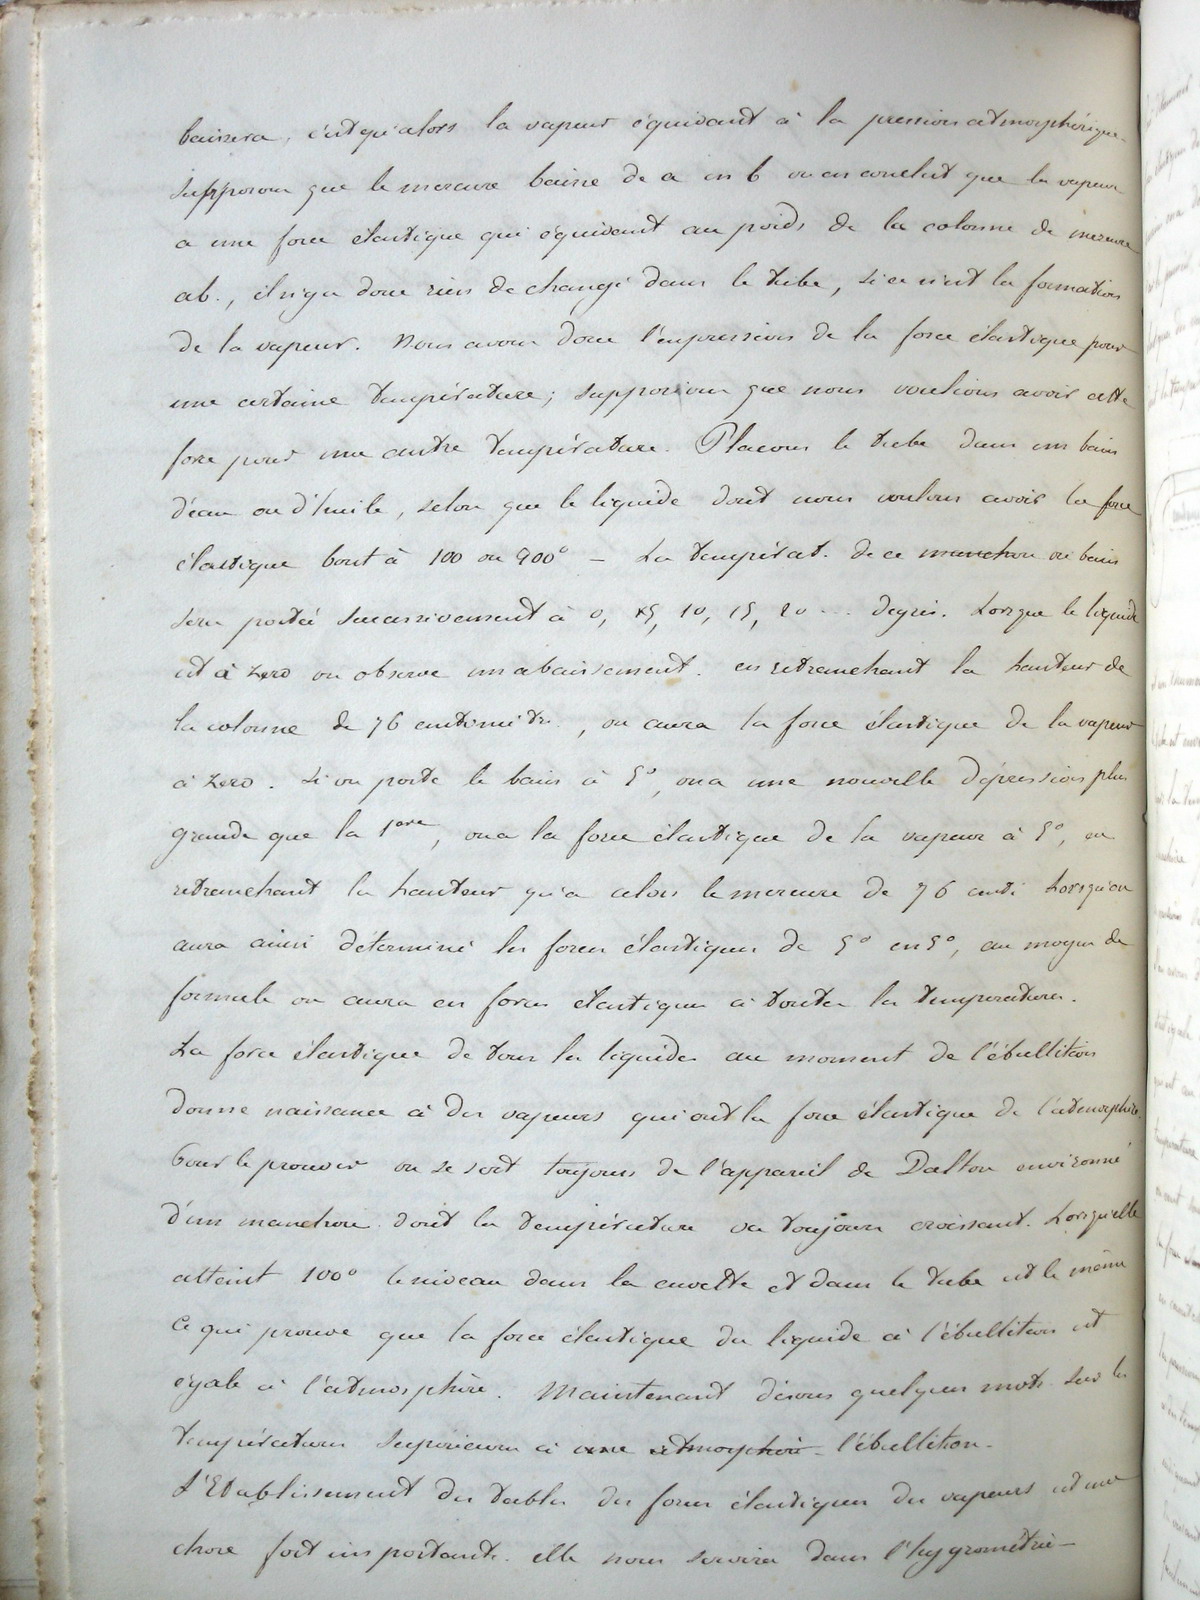 baissera, c'est qu'alors la vapeur équivaut à la pression atmosphérique.
supposons que le mercure baisse de a en b on en conclut que la vapeur
a une force élastique qui équivaut au poids de la colonne de mercure
ab., il n'y a donc rien de changé dans le tube, si ce n'est la formation
de la vapeur. Nous avons donc l'expression de la force élastique pour
une certaine température; supposions que nous voulions avoir cette
force pour une autre température. Placons le tube dans un bain
d'eau ou d'huile, selon que le liquide dont nous voulons avoir la force
élastique bout à 100 ou 900° — La températ. de ce manchon ou bain
sera portée successivement à 0, 5, 10, 15, 20 ... degrés. Lorsque le liquide
est à zero on observe un abaissement. en retranchant la hauteur de
la colonne de 76 centimètr., on aura la force élastique de la vapeur
à zero. Si on porte le bain à 5°, on a une nouvelle dépression plus
grande que la 1ere, on a la force élastique de la vapeur à 5°, en
retranchant la hauteur qu'a alors le mercure de 76 centi. Lorsqu'on
aura ainsi déterminé les forces élastiques de 5° en 5°, au moyen de
formule on aura ces forces élastiques à toutes les temperatures.
La force élastique de tous les liquides au moment de l'ébullition
donne naissance à des vapeurs qui ont la force élastique de l'atmosphère.
Pour le prouver on se sert toujours de l'appareil de Dalton environné
d'un manchon dont la température va toujours croissant. Lorsqu'elle
atteint 100° le niveau dans la cuvette et dans le tube est le même
Ce qui prouve que la force élastique du liquide à l'ébullition est
égale à l'atmosphère. Maintenant disons quelques mots sur les
températures supérieures à une atmosphère l'ébullition.
L'Etablissement des tables des forces élastiques des vapeurs est une
chose fort importante. elle nous servira dans l'hygrométrie —